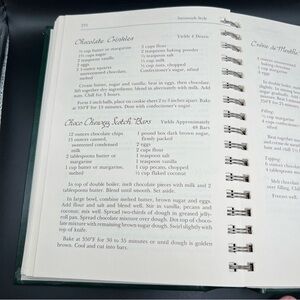 Savannah Style
Chocolate Crinkles
Yields 4 Dozen
½ cup butter or margarine
1⅔ cups sugar
2 teaspoons vanilla
2 eggs
2 ounces squares
unsweetened chocolate,
melted
2 cups flour
2 teaspoons baking powder
½ teaspoon salt
⅓ cup milk
½ cup nuts, chopped
Confectioners' sugar, sifted
Cream butter, sugar and vanilla; beat in eggs, then chocolate.
Sift together dry ingredients; blend in alternately with milk. Add
nuts. Chill for 3 hours.
Form 1-inch balls, place on cookie sheet 2 to 3 inches apart. Bake
at 350°F for 15 minutes. Dust with confectioner's sugar.
Choco Chewy Scotch Bars
Yields Approximately
48 Bars
12 ounces chocolate chips
15 ounces canned,
sweetened condensed
milk
2 tablespoons butter or
margarine
1 cup butter or margarine
1 pound box dark brown sugar,
firmly packed
2 eggs
2 cups flour
1 teaspoon salt
1 teaspoon vanilla
1 cup pecans, chopped
½ cup flaked coconut
In top of double boiler, melt chocolate pieces with milk and 2
tablespoons butter. Blend until smooth. Set aside.
In large bowl, combine melted butter, brown sugar and eggs.
Add flour and salt and blend well. Stir in vanilla, pecans and
coconut; mix well. Spread two-thirds of dough in greased jelly-
roll pan. Spread chocolate mixture over dough. Dot top of choco-
late mixture with remaining brown sugar dough. Swirl slightly with
top of knife.
Bake at 350°F for 30 to 35 minutes or until dough is golden
brown. Cool and cut into bars.
Crème de Menthe
Filling:
Topping:
Melt chocolate